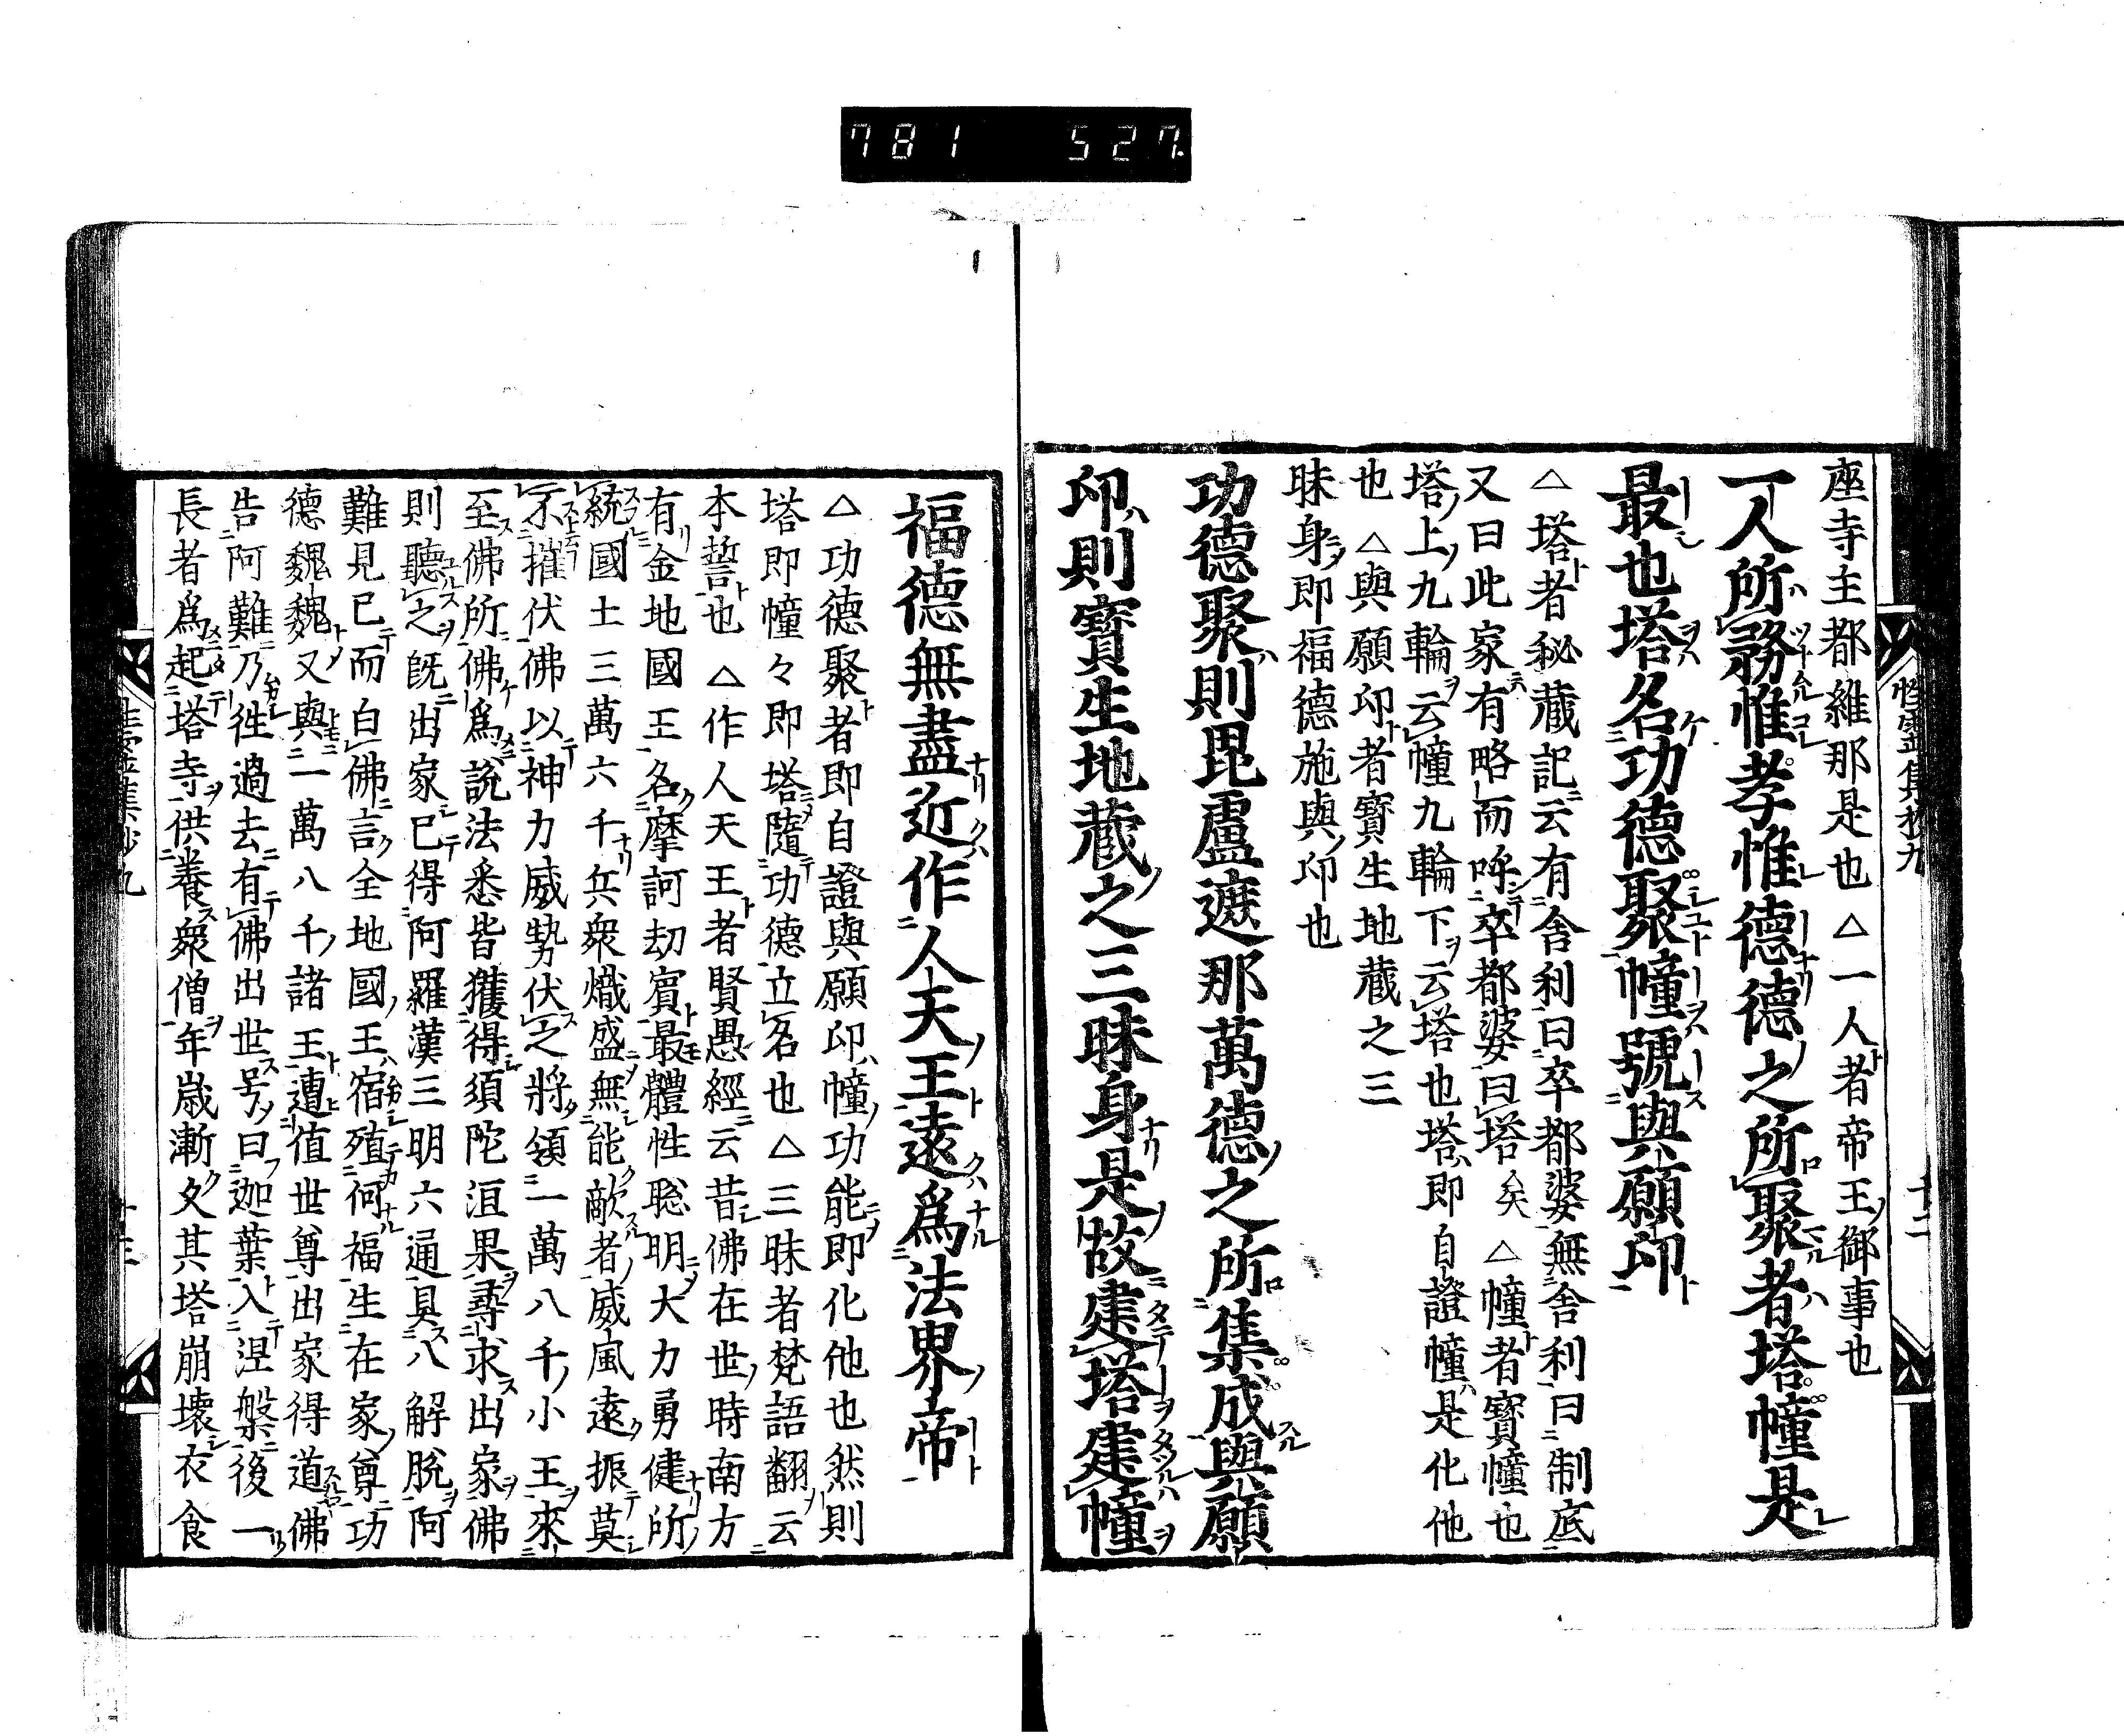 781 527
性霊集抄九
十二
座寺主都維那是也△一人者帝王御事也
一人所務惟孝惟德德之所聚者塔幢是
最也塔名功德聚幢號與願印
△塔者秘藏記云有舎利曰卒都婆無舎利曰制底
又曰此家有略而呼卒都婆曰塔矣△幢者寶幢也
塔上九輪云幢九輪下云塔也塔即自證幢是化他
也△與願印者寶生地藏之三
昧身即福德施與印也
功德聚則毘盧遮那萬德之所集成與願
印則寶生地蔵之三昧身是故建塔建幢
福德無盡近作人天王遠爲法界帝
△功德聚者即自證與願印幢功能即化他也然則
塔即幢々即塔隨功德立名也△三昧者梵語翻云
本誓也△作人天王者賢愚經云昔佛在世時南方
有金地國王名摩訶劫賓最體性聡明大力勇健所
統國土三萬六千兵衆熾盛無能敵者威風遠振莫
不摧伏佛以神力威勢伏之將領一萬八千小王來
至佛所佛爲說法悉皆獲得須陀洹果尋求出家佛
則聽之既出家已得阿羅漢三明六通具八解脫阿
難見已而白佛言全地國王宿殖何福生在家尊功
德巍巍又與一萬八千諸王遭值世尊出家得道佛
告阿難乃徃過去有佛出世号曰迦葉入涅槃後一
長者爲起塔寺供養衆僧年歲漸久其塔崩壞衣食